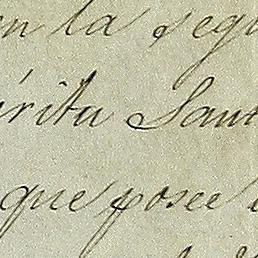 en la segu
érita Sant
que posee